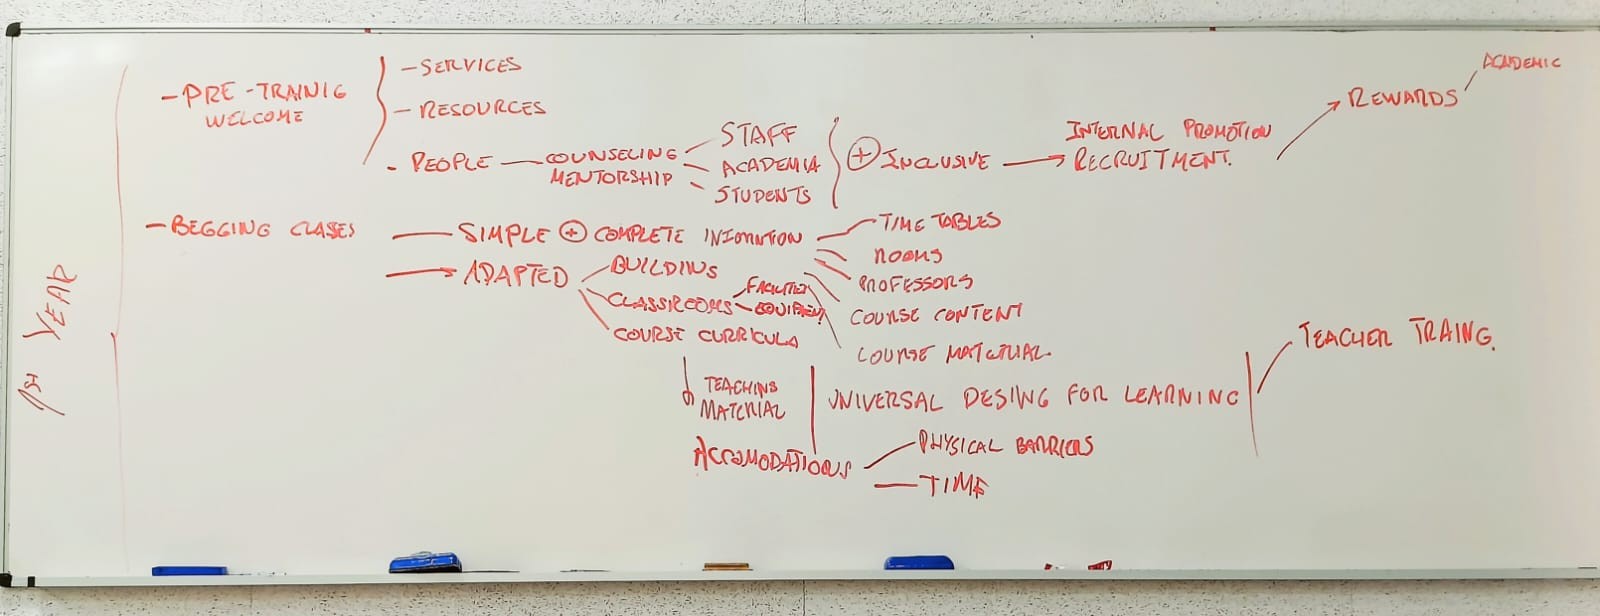 1st YEAR
- PRE-TRAINIG
WELCOME
- SERVICES
- RESOURCES
- PEOPLE
COUNSELING
MENTORSHIP
STAFF
ACADEMIA
STUDENTS
+ INCLUSIVE
INTERNAL PROMOTION
RECRUITMENT.
REWARDS
ACADEMIC
- BEGGING CLASES
SIMPLE + COMPLETE INFOMATION
TIME TABLES
ROOMS
PROFESSORS
COURSE CONTENT
COURSE MATERIAL
ADAPTED
BUILDING
CLASSROOMS
FACILITIES
EQUIPMENT
COURSE CURRICULA
TEACHING
MATERIAL
UNIVERSAL DESING FOR LEARNING
TEACHER TRAING.
ACCOMODATIONS
PHYSICAL BARRIERS
TIME